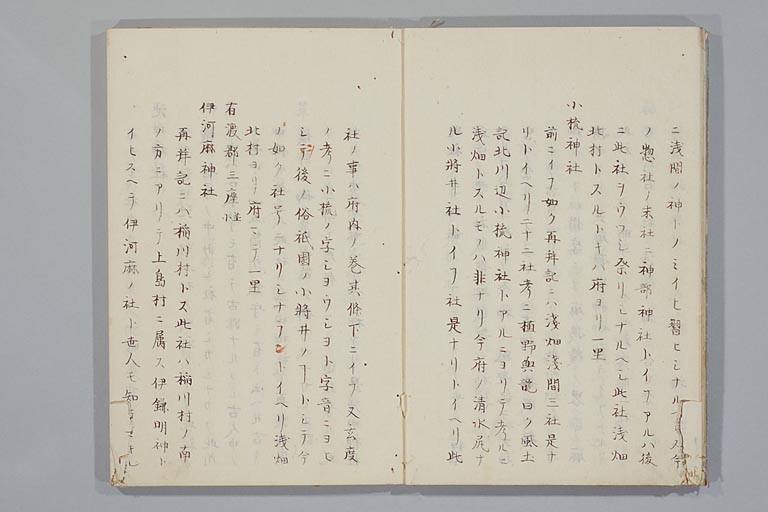 ニ浅間ノ神トノミイヒ習ヒシナル ス今
ノ惣社ノ末社ニ神部神社トイフアルハ後
ニ此社ヲウツシ祭リシナルヘシ此社浅畑
北村トスルトキハ府ヨリ一里
小梳神社
前ニイフ如ク再拜記ニハ浅畑浅間三社是ナ
リトイヘリ二十二社考ニ植野興龍曰ク風土
記北川辺小梳神社トアルニヨリテ考ルニ
浅畑トスルモノハ非ナリ今府ノ清水尻ナ
ル小将井社トイフ社是ナリトイヘリ此
社ノ事ハ府内ノ巻其條下ニイフ又玄度
ノ考ニ小梳ノ字シヨウシヨト字音ニヨヒ
シヲ後ノ俗祇園ノ小将井ノ トシテ今
ノ如ク社号ニナリシナラ トイヘリ浅畑
北村ヨリ府 テ一里
有渡郡三座
伊河麻神社
再拜記ニハ稲川村トス此社ハ稲川村ノ南
ノ方ニアリテ上島村ニ属ス伊鎌明神ト
イヒスヘテ伊河麻ノ社ト世人モ知 サル